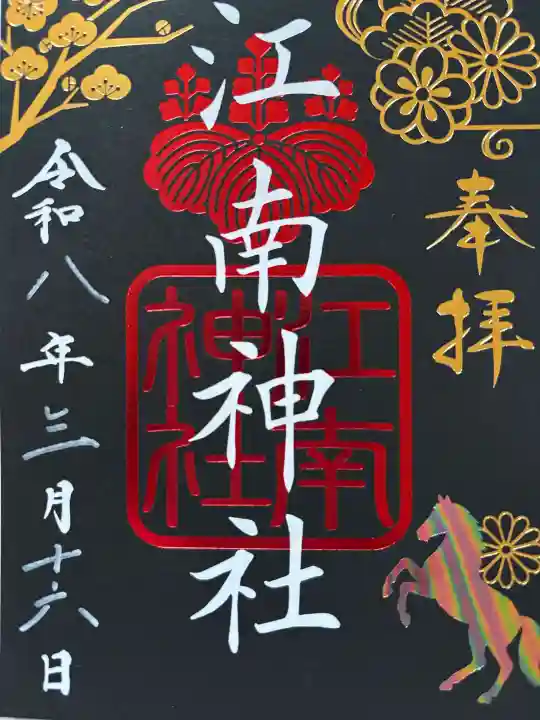 奉拝
江南神社
江南神社
令和八年三月十六日